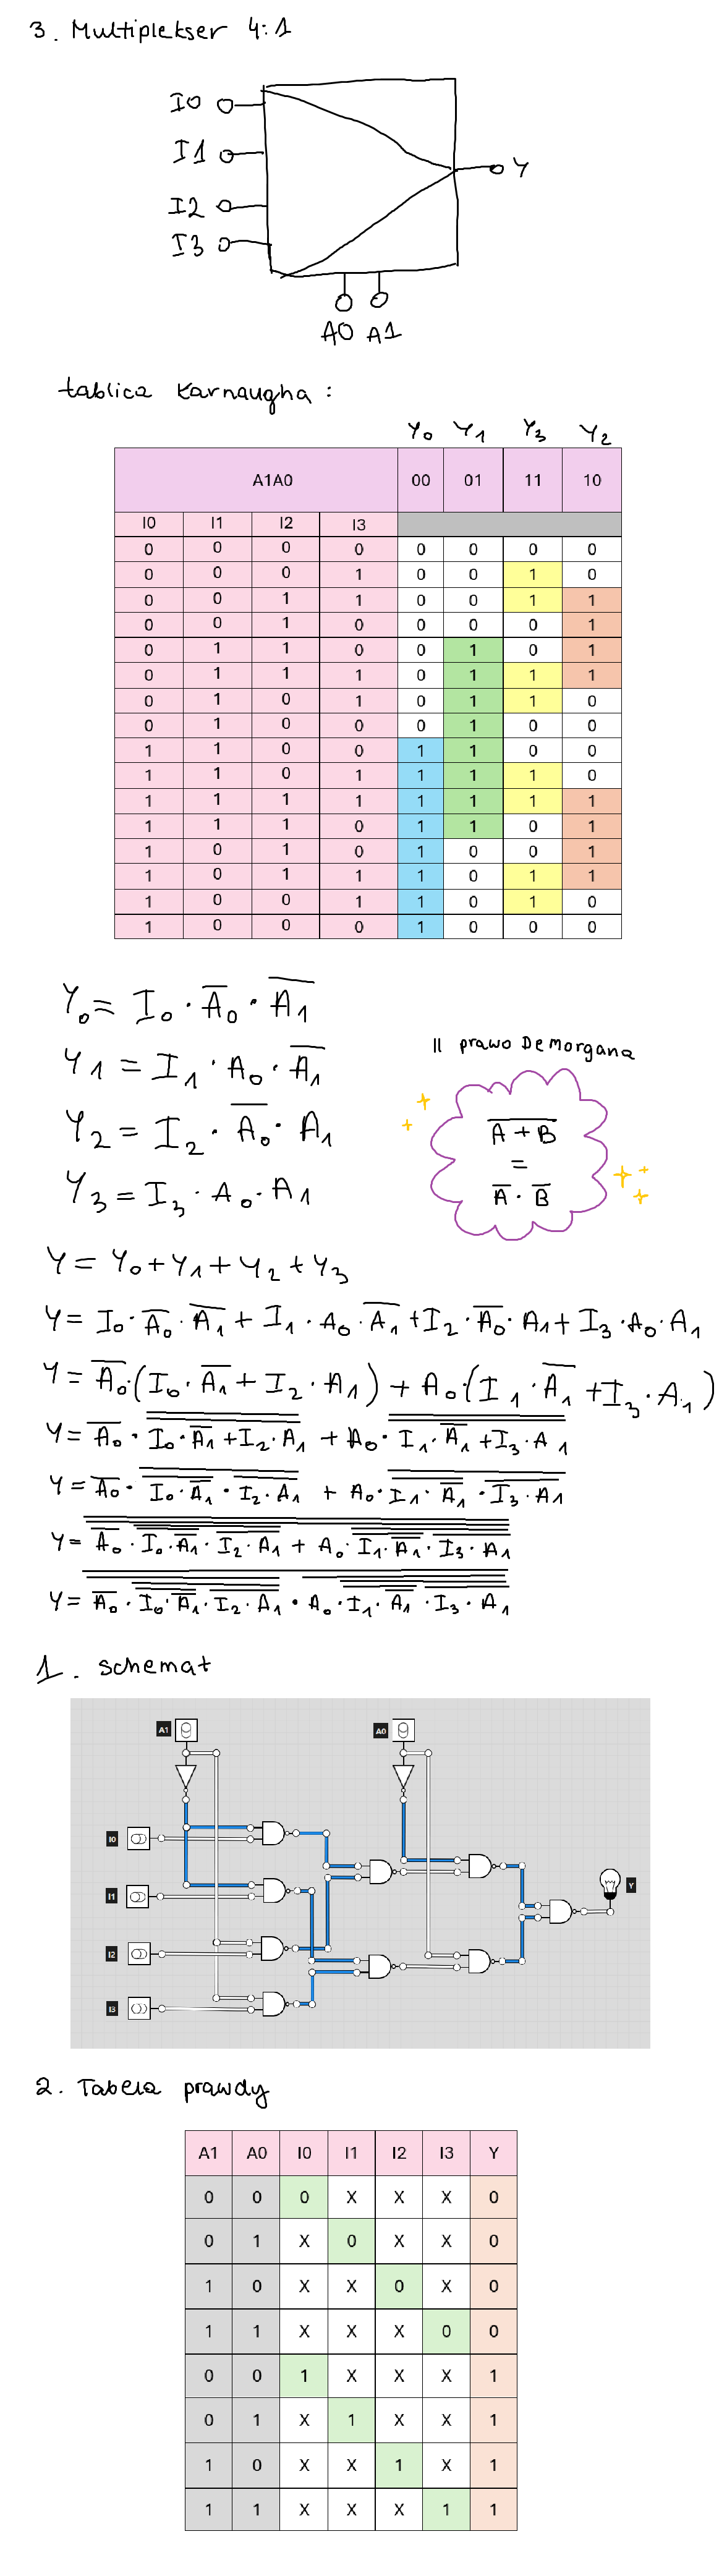 3. Multiplekser 4:1
I0
I1
I2
I3
Y
A0 A1
tablica Karnaugha :
Y₀ Y₁ Y₃ Y₂
A1A0 00 01 11 10
I0 I1 I2 I3
0 0 0 0 0 0 0 0
0 0 0 1 0 0 1 0
0 0 1 1 0 0 1 1
0 0 1 0 0 0 0 1
0 1 1 0 0 1 0 1
0 1 1 1 0 1 1 1
0 1 0 1 0 1 1 0
0 1 0 0 0 1 0 0
1 1 0 0 1 1 0 0
1 1 0 1 1 1 1 0
1 1 1 1 1 1 1 1
1 1 1 0 1 1 0 1
1 0 1 0 1 0 0 1
1 0 1 1 1 0 1 1
1 0 0 1 1 0 1 0
1 0 0 0 1 0 0 0
Y₀ = I₀ · A̅₀ · A̅₁
Y₁ = I₁ · A₀ · A̅₁
Y₂ = I₂ · A̅₀ · A₁
Y₃ = I₃ · A₀ · A₁
II prawo DeMorgana
A̅ ̅+̅ ̅B̅
=
A̅ · B̅
Y = Y₀ + Y₁ + Y₂ + Y₃
Y = I₀ · A̅₀ · A̅₁ + I₁ · A₀ · A̅₁ + I₂ · A̅₀ · A₁ + I₃ · A₀ · A₁
Y = A̅₀ · (I₀ · A̅₁ + I₂ · A₁) + A₀ · (I₁ · A̅₁ + I₃ · A₁)
Y = A̅₀ · I₀ · A̅₁ + I₂ · A₁ + A₀ · I₁ · A̅₁ + I₃ · A₁
Y = A̅₀ · I₀ · A̅₁ · I₂ · A₁ + A₀ · I₁ · A̅₁ · I₃ · A₁
Y = A̅₀ · I₀ · A̅₁ · I₂ · A₁ + A₀ · I₁ · A̅₁ · I₃ · A₁
Y = A̅₀ · I₀ · A̅₁ · I₂ · A₁ · A₀ · I₁ · A̅₁ · I₃ · A₁
1. schemat
A1 A0
I0
I1
Y
I2
I3
2. Tabela prawdy
A1 A0 I0 I1 I2 I3 Y
0 0 0 X X X 0
0 1 X 0 X X 0
1 0 X X 0 X 0
1 1 X X X 0 0
0 0 1 X X X 1
0 1 X 1 X X 1
1 0 X X 1 X 1
1 1 X X X 1 1